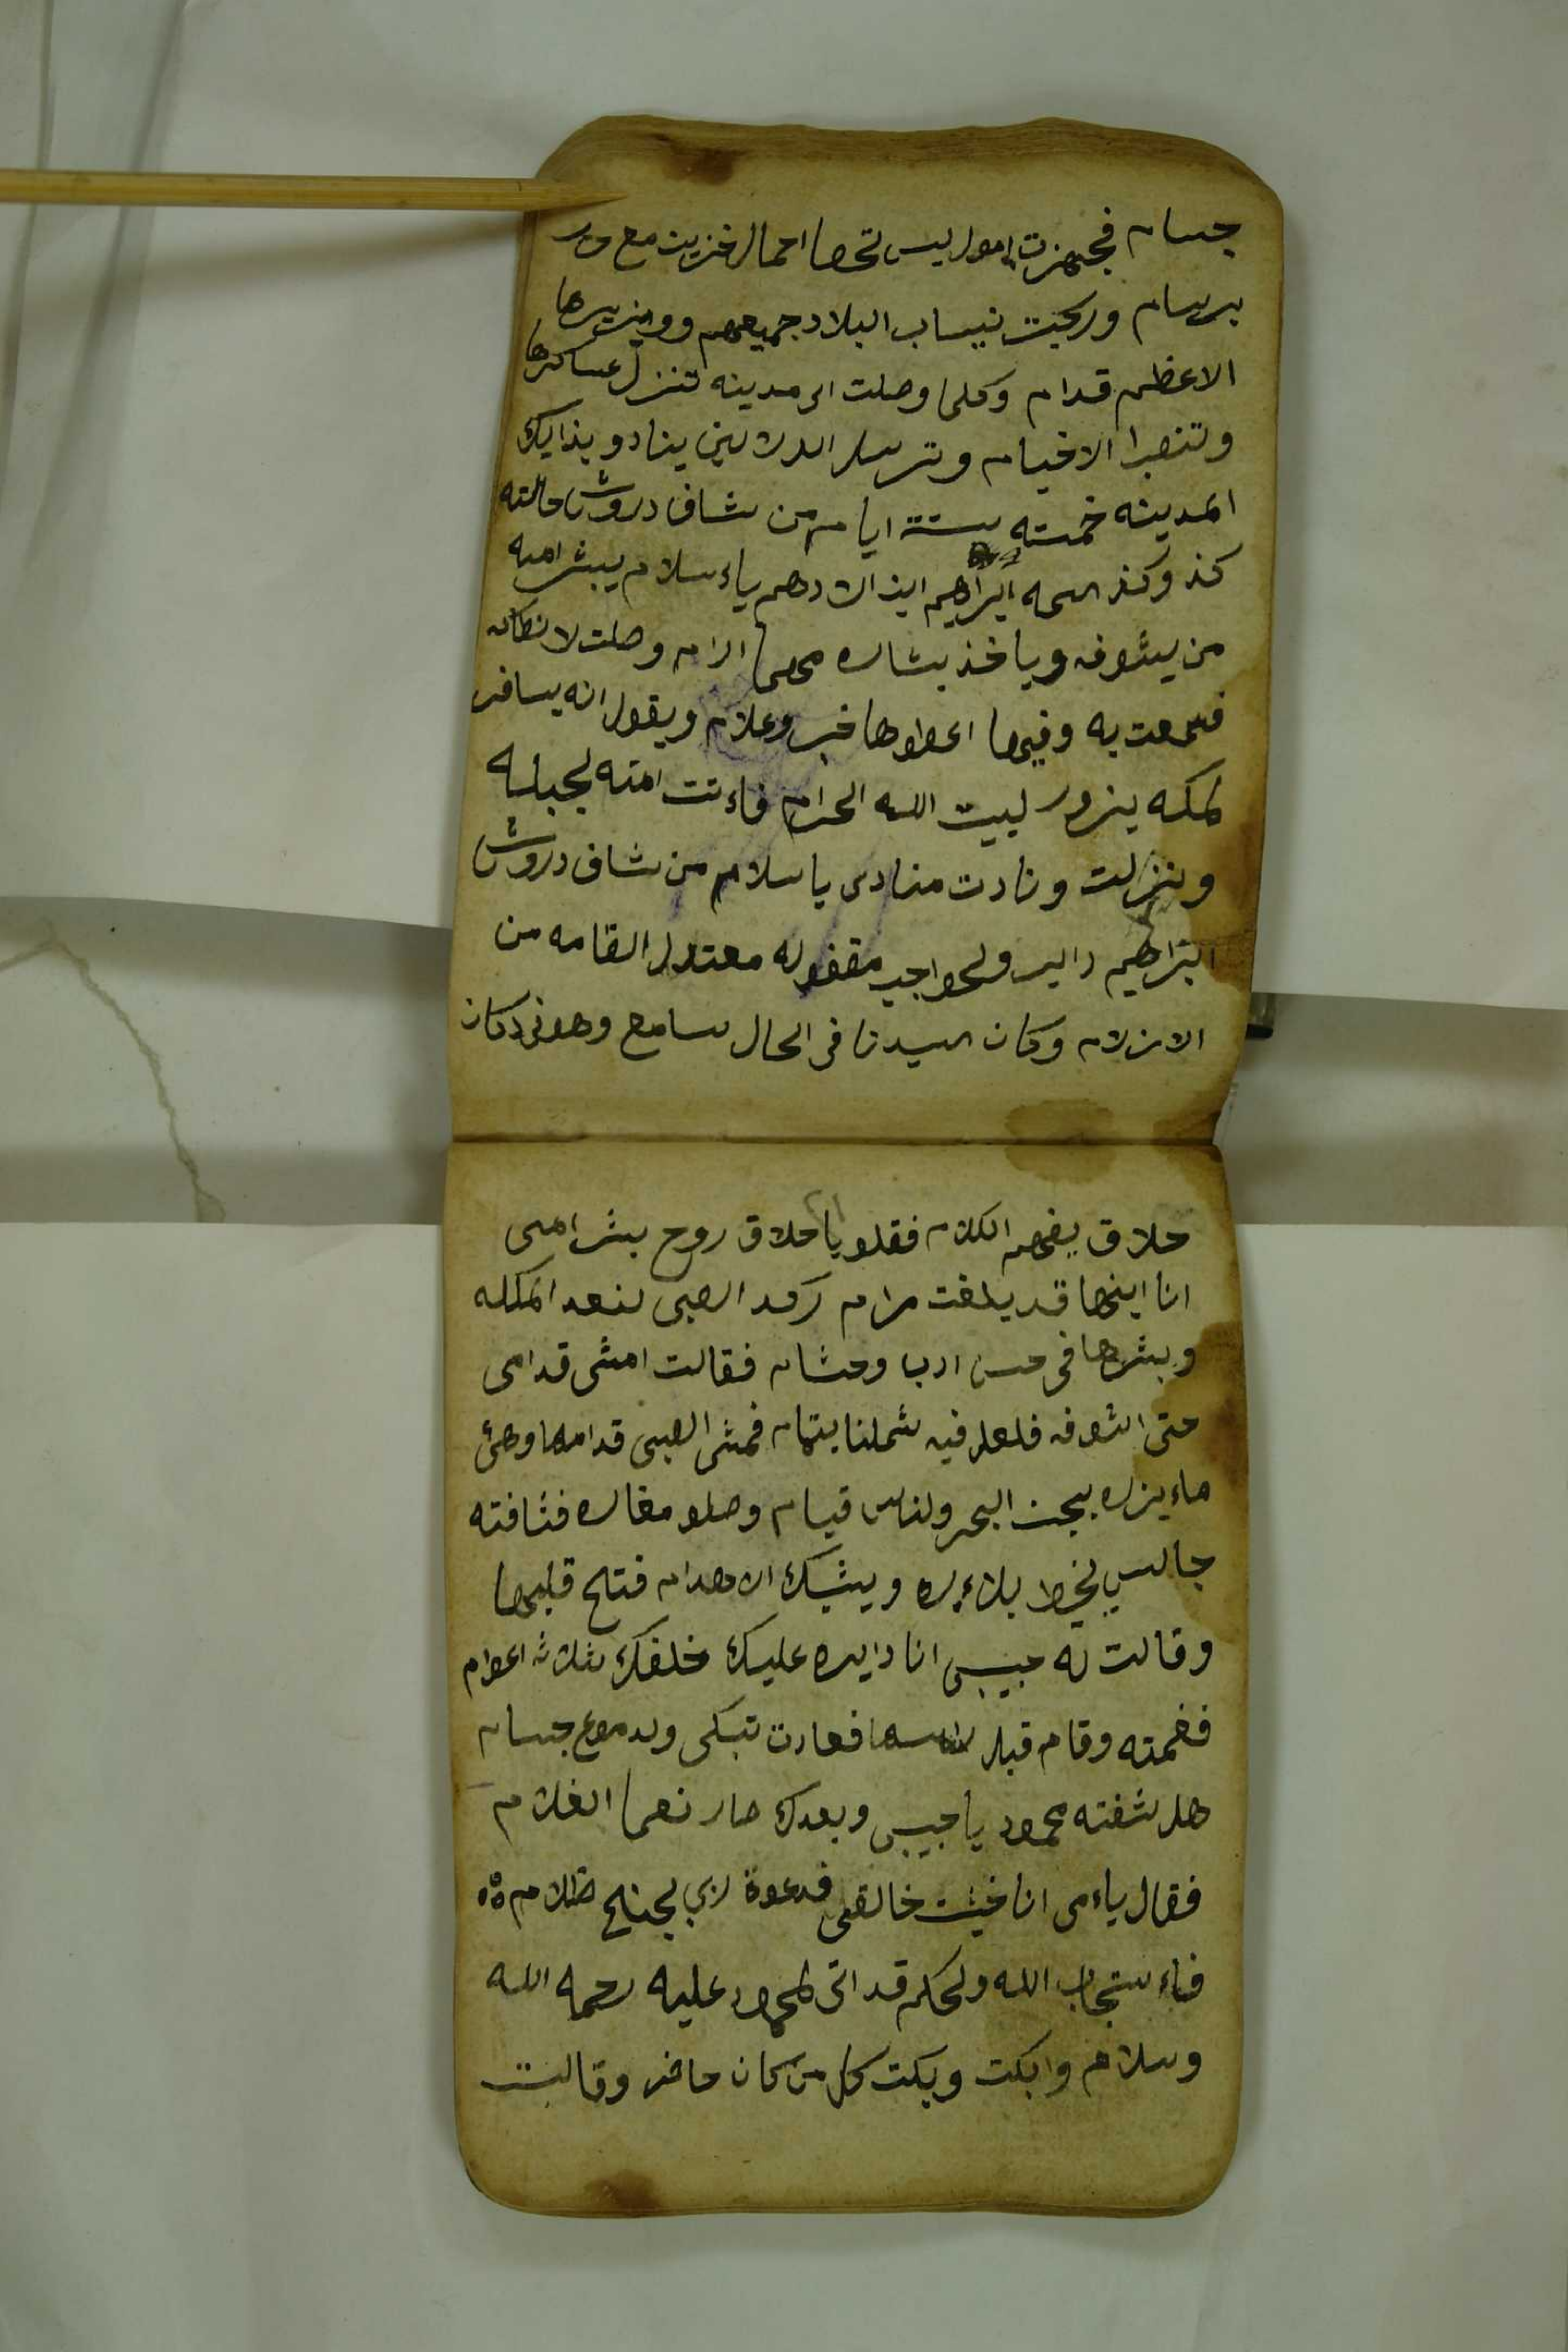 جسام فجهزت اموال ليس تحصا احمال خزين مع
برسام وركبت نيساب البلاد جميعهم ووزيرها
الاعظم قدام وكلما وصلت الى مدينه تنزل عساكرها
وتنصبوا الاخيام وترسل الدلالين ينادو بذايك
المدينه خمسته ستة ايام من شاف دروش حالته
كذ وكذ اسمه ابراهيم ابن الادهم ياءسلام يبشر امه
من يشوفه وياخذ بشاره مهما الرام وصلت لانطاكه
فسمعت به وفيها اعطوها خبر وعلام ويقول انه يسافر
لمكه يزور لبيت الله الحرام فاءتت امته لجبله
ونزلت ونادت منادى ياسلام من شاف دروش
ابراهيم داير ولحواجب مقفوله معتدل القامه من
الازلام وكان السيدنا فى الحال سامع وهو فى دكان
حلاق يفهم الكلام فقلو ياحلاق روح بشر امى
انا ابنها قد بلغت مرام ركد الصبى لنعد المكله
وبشرها فى حسن ادب وحشام فقالت امشى قدامى
حتى اشوفه فلعل فيه شملنا بتمام فمشى الصبى قدامها وهى
ماءيزره بجنب البحر ولناس قيام وصلو مغاره فشافته
جالس يخيط بلاءبره ويشبك الاهدام فتح قلبها
وقالت له حبيبى انا دايره عليك خلفك ثلاثة اعوام
فضمته وقام قبل راسها فعادت تبكى ولدموع جسام
هل شفته محمود ياحبيبى وبعدك صار نعما الغلام
فقال ياءمى انا خيفت خالقى فدعوة ربي بجنح ظلام
فاءستجاب الله ولحكم قد اتى لمحمود عليه رحمه الله
وسلام وابكت وبكت كل من كان حاضر وقالت